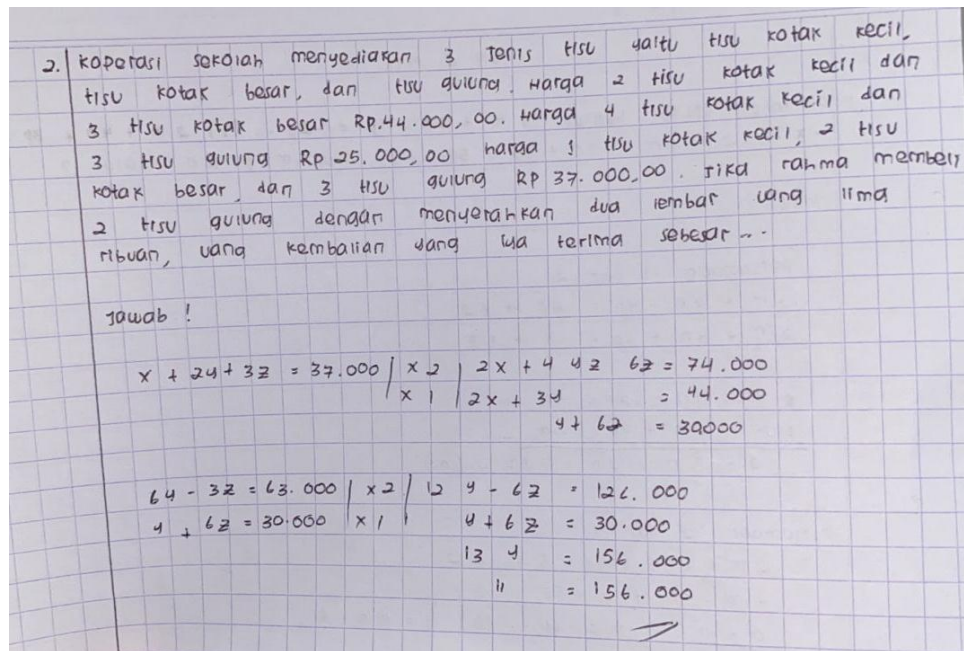 2. Koperasi sekolah menyediakan 3 jenis tisu yaitu tisu kotak kecil,
tisu kotak besar, dan tisu gulung. Harga 2 tisu kotak kecil dan
3 tisu kotak besar RP.44.000,00. Harga 4 tisu kotak kecil dan
3 tisu gulung RP 25.000,00 harga 1 tisu kotak kecil, 2 tisu
kotak besar, dan 3 tisu gulung RP 37.000,00. jika rahma membeli
2 tisu gulung dengan menyerahkan dua lembar uang lima
ribuan, uang kembalian yang iya terima sebesar...
Jawab !
x + 2y + 3z = 37.000 | x 2 | 2x + 4 yz 6z = 74.000
| x 1 | 2x + 3y = 44.000
y + 6z = 30.000
6y - 3z = 63.000 | x2 | 12 y - 6z = 126.000
y + 6z = 30.000 | x 1 | y + 6z = 30.000
13 y = 156.000
11 = 156.000